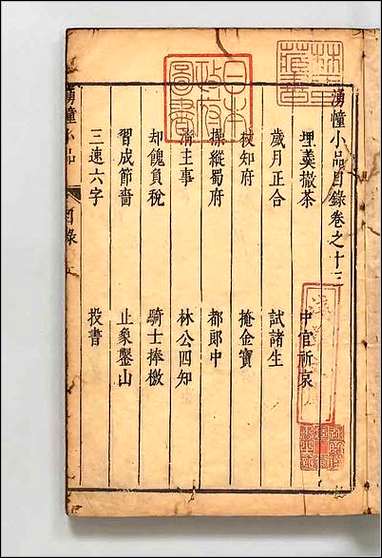 湧幢小品目錄卷之十三
埋羹撤茶
中官祈哀
歲月正合
試諸生
杖知府
掩金寶
操縱蜀府
都郎中
主事
林公四知
却餽負稅
騎士捧檄
習成節嗇
止象鑿山
三速六字
投書
湧幢小品
目錄
日本
政府
圖書
林氏
藏書